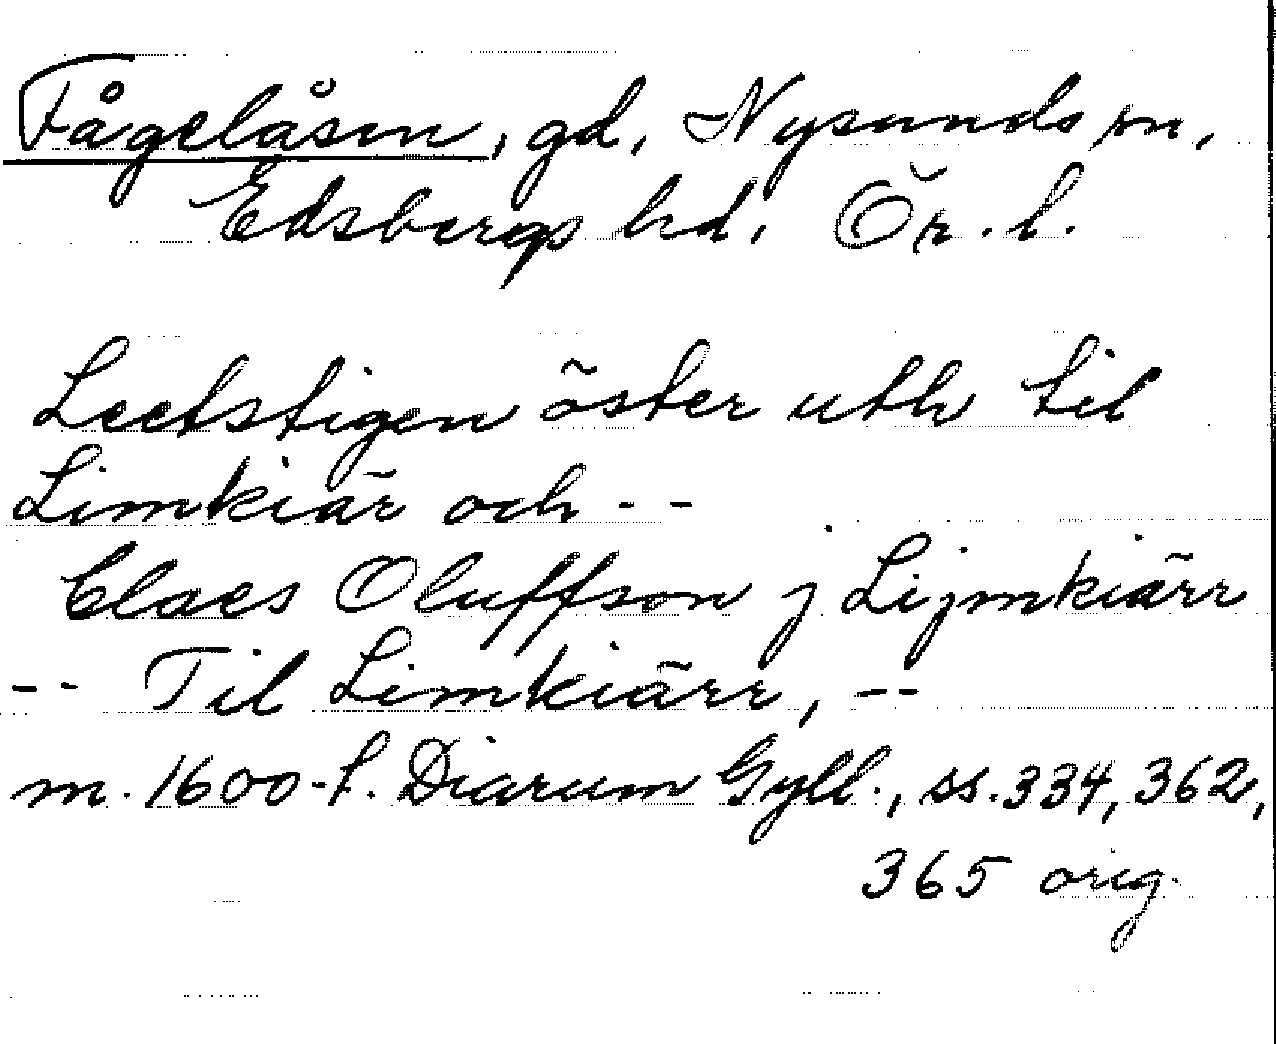 Fågelåsen, gd, Nysunds sn,
Edsbergs hd, Ör. l.
Leetstigen öster uth til
Limkiär och --
Claes Oluffson j Lijmkiärr
-- Til Limkiärr, --
m. 1600-t. Diarum Gyll., ss. 334, 362,
365 orig.